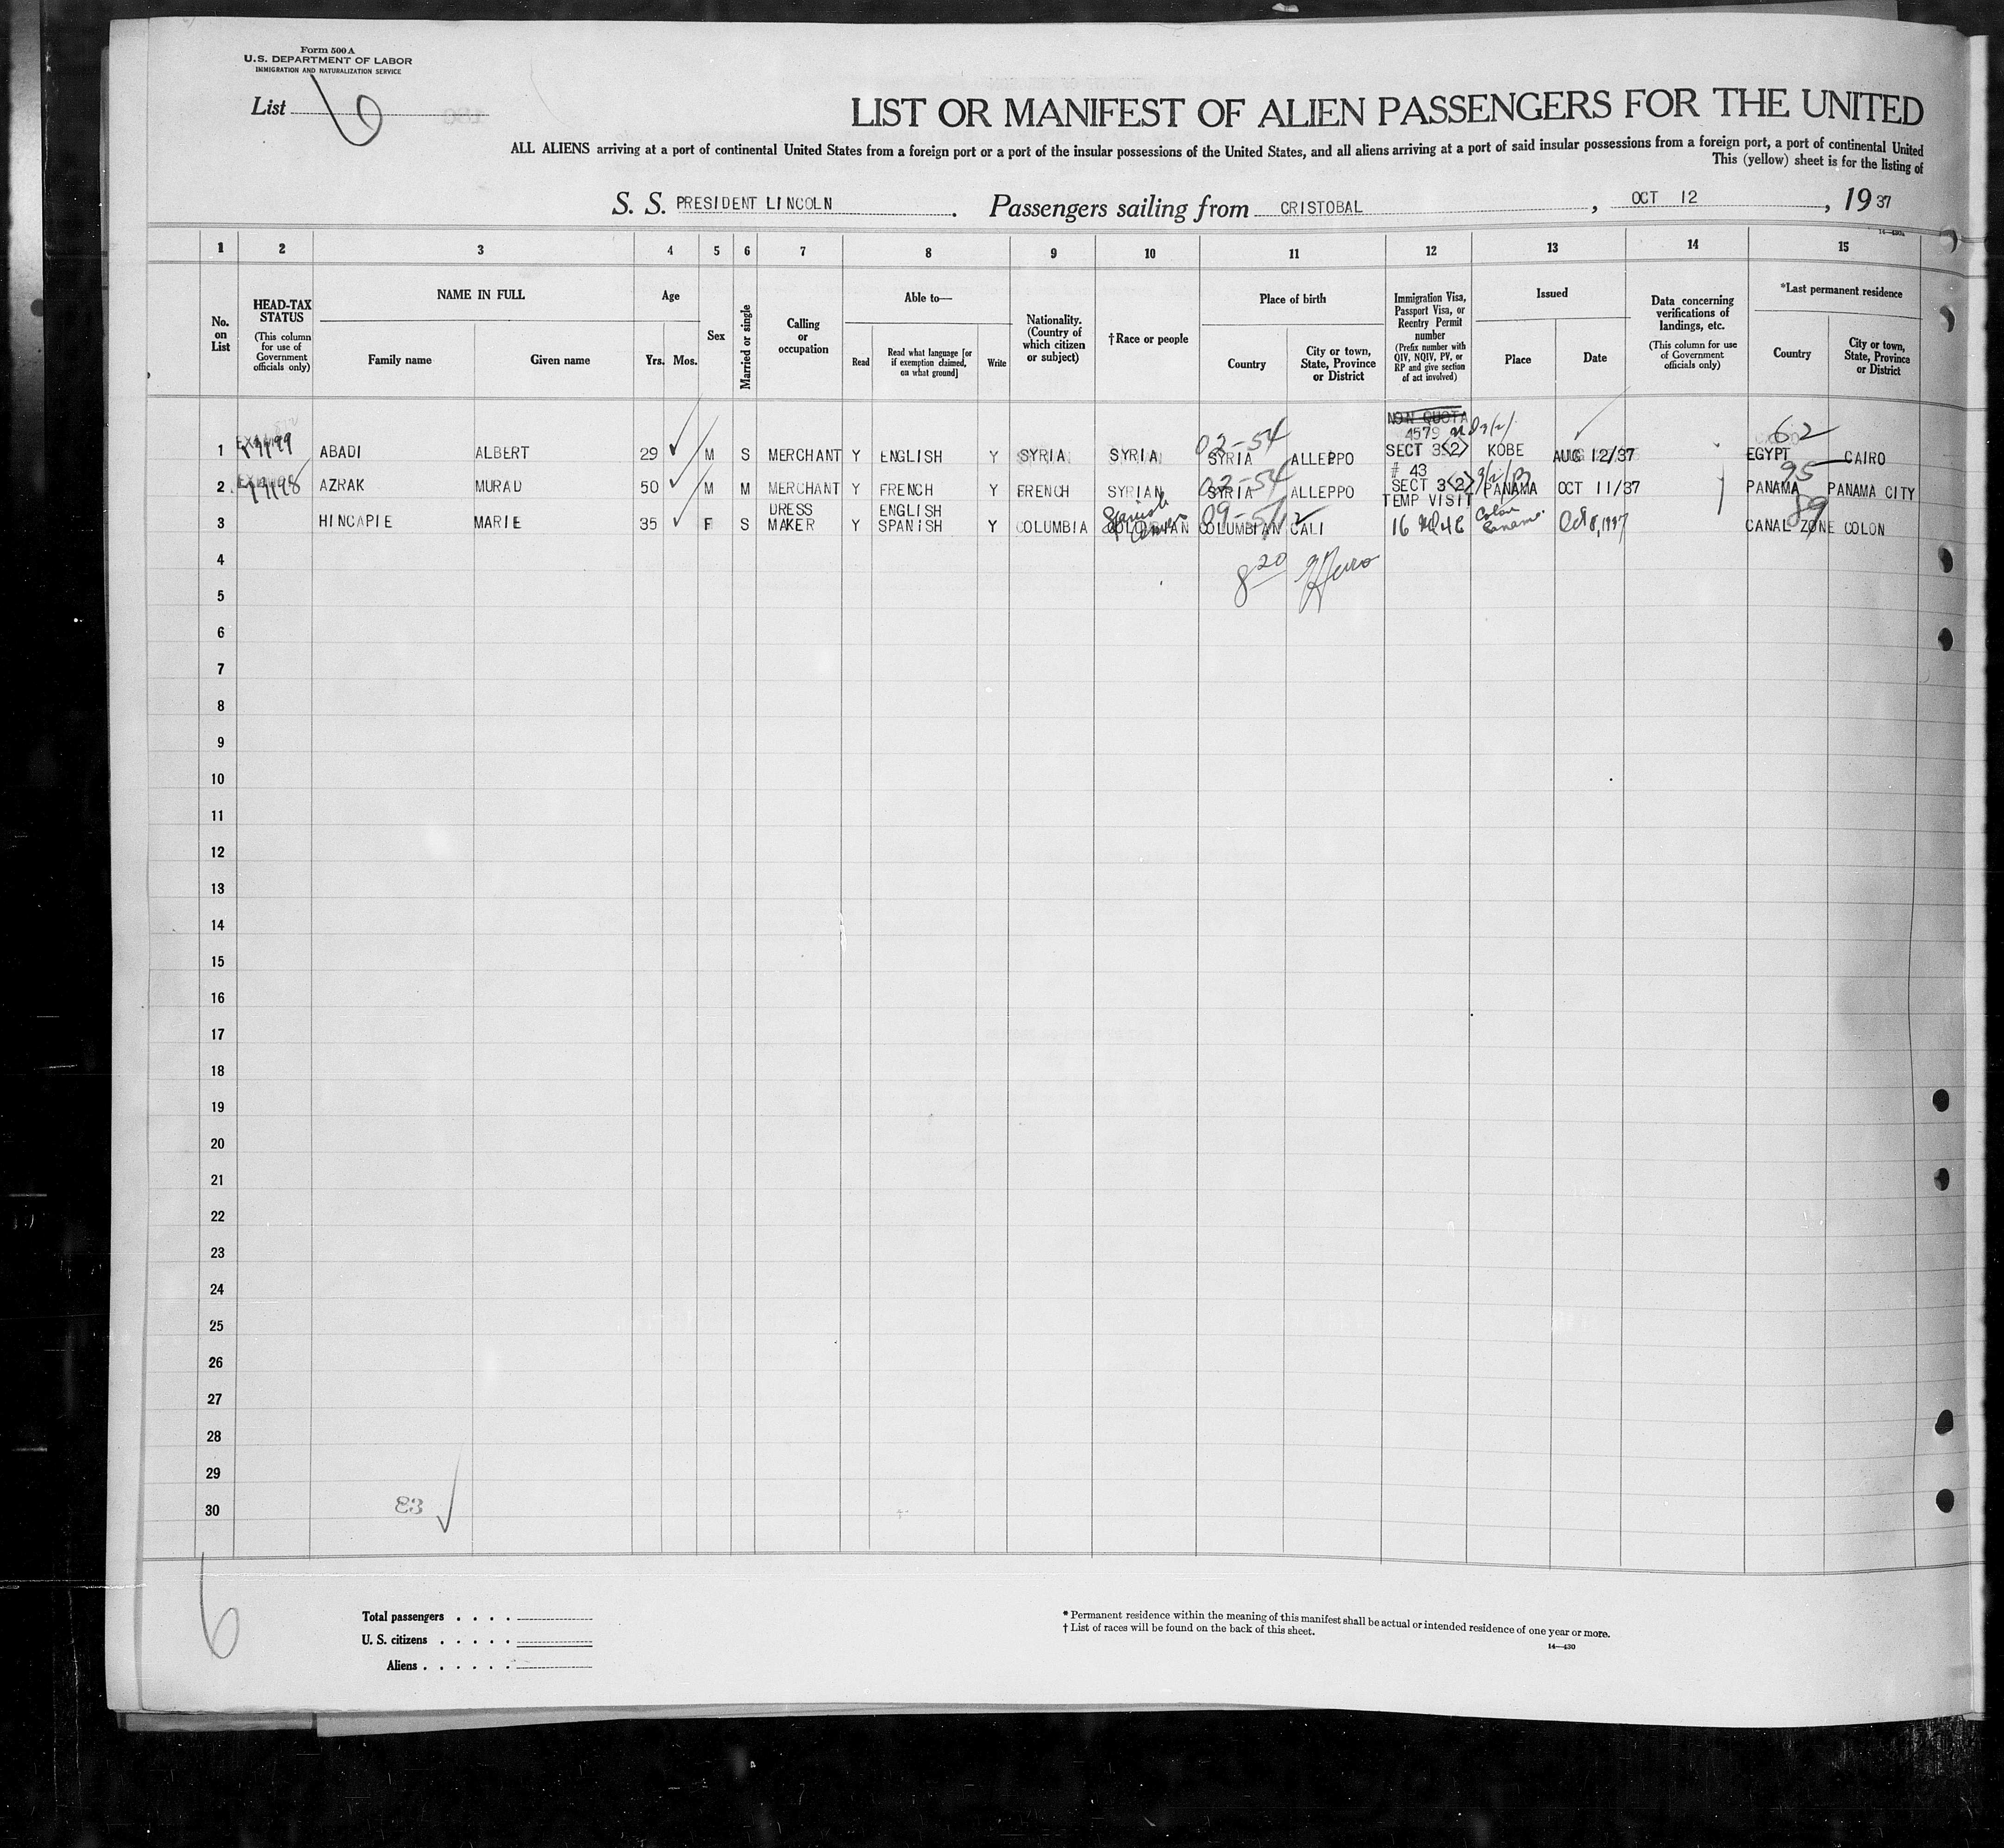 Form 500 A
U.S. DEPARTMENT OF LABOR
IMMIGRATION AND NATURALIZATION SERVICE
List 6
LIST OR MANIFEST OF ALIEN PASSENGERS FOR THE UNITED
ALL ALIENS arriving at a port of continental United States from a foreign port or a port of the insular possessions of the United States, and all aliens arriving at a port of said insular possessions from a foreign port, a port of continental United
This (yellow) sheet is for the listing of
S. S. PRESIDENT LINCOLN . Passengers sailing from CRISTOBAL , OCT 12 , 19 37
1 2 3 4 5 6 7 8 9 10 11 12 13 14 15
No. on List
HEAD-TAX STATUS (This column for use of Government officials only)
NAME IN FULL
Family name Given name
Age
Yrs. Mos.
Sex
Married or single
Calling or occupation
Able to—
Read Read what language [or if exemption claimed, on what ground] Write
Nationality. (Country of which citizen or subject)
†Race or people
Place of birth
Country City or town, State, Province or District
Immigration Visa, Passport Visa, or Reentry Permit number (Prefix number with QIV, NQIV, PV, or RP and give section of act involved)
Issued
Place Date
Data concerning verifications of landings, etc. (This column for use of Government officials only)
*Last permanent residence
Country City or town, State, Province or District
NON QUOTA
02-54 4579 62
1 ABADI ALBERT 29 M S MERCHANT Y ENGLISH Y SYRIA SYRIA SYRIA ALLEPPO SECT 3<2> KOBE AUG 12/37 EGYPT CAIRO
02-54 # 43 95
2 AZRAK MURAD 50 M M MERCHANT Y FRENCH Y FRENCH SYRIAN SYRIA ALLEPPO SECT 3<2> PANAMA OCT 11/37 PANAMA PANAMA CITY
TEMP VISIT
DRESS ENGLISH Spanish Colon 89
3 HINCAPIE MARIE 35 F S MAKER Y SPANISH Y COLUMBIA COLUMBIAN CALI 16 Panama Oct 8, 1937 CANAL ZONE COLON
4
8 20
5
6
7
8
9
10
11
12
13
14
15
16
17
18
19
20
21
22
23
24
25
26
27
28
29
30
83
6
Total passengers . . . .
U. S. citizens . . . . .
Aliens . . . . . .
* Permanent residence within the meaning of this manifest shall be actual or intended residence of one year or more.
† List of races will be found on the back of this sheet.
14—430